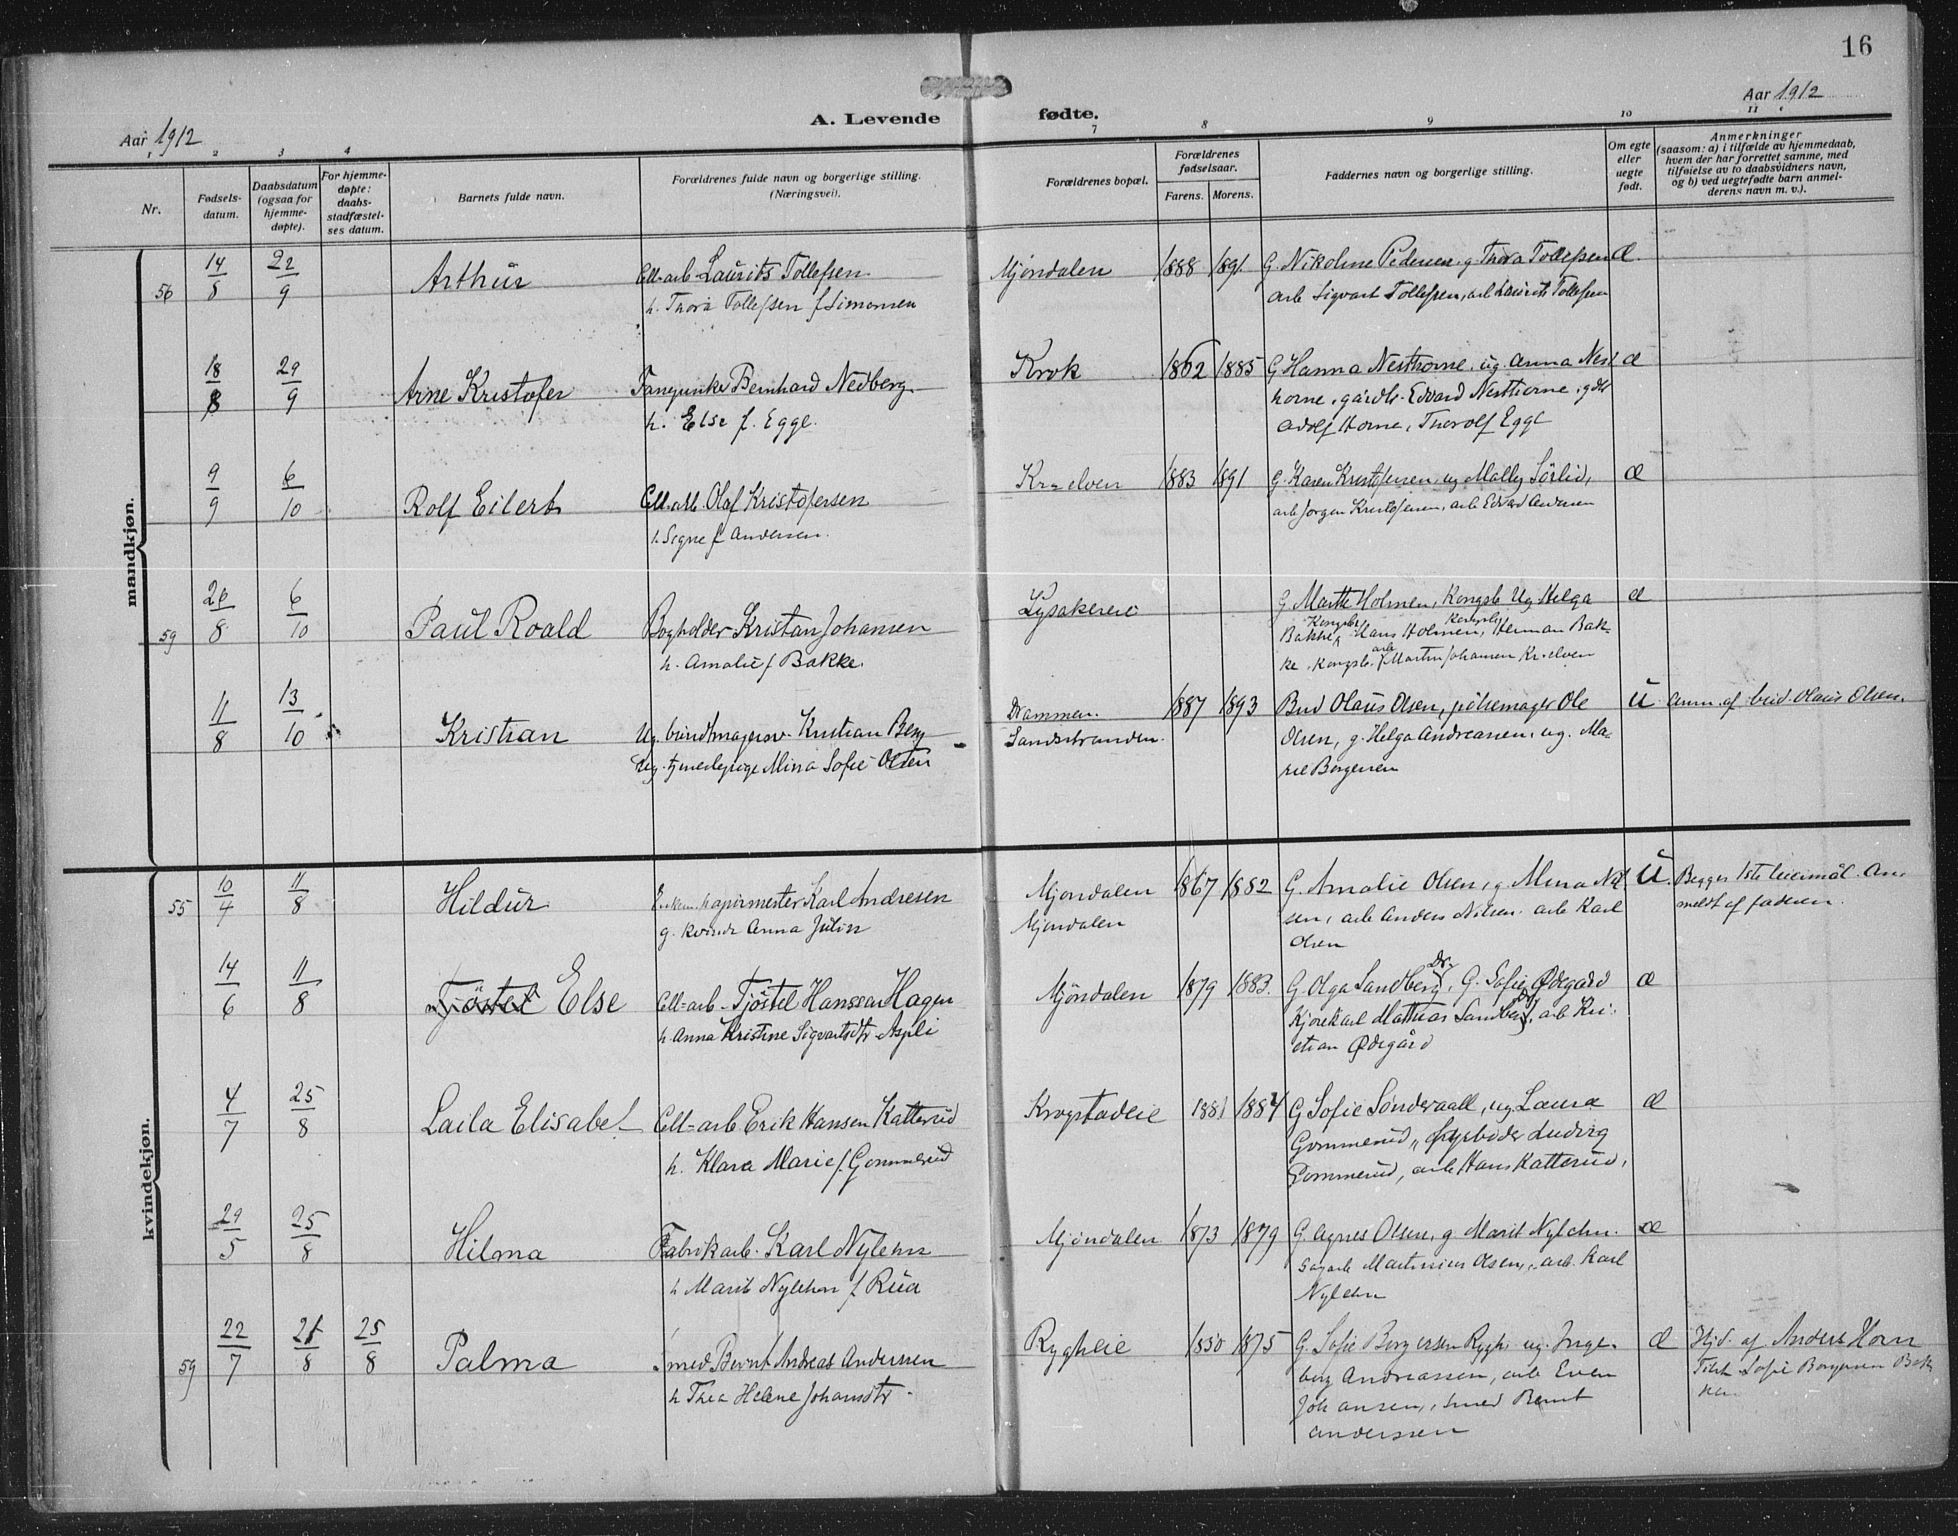 16
Aar 1912
A. Levende fødte.
Aar 1912
1 2 3 4 7 8 9 10 11
Nr.
Fødsels-
datum.
Daabsdatum
(ogsaa for
hjemme-
døpte).
For hjemme-
døpte:
daabs-
stadfæstel-
ses datum.
Barnets fulde navn.
Forældrenes fulde navn og borgerlige stilling.
(Næringsvei).
Forældrenes bopæl.
Forældrenes
fødselsaar.
Farens. Morens.
Faddernes navn og borgerlige stilling.
Om egte
eller
uegte
født.
Anmerkninger
(saasom: a) i tilfælde av hjemmedaab,
hvem der har forrettet samme, med
tilføielse av to daabsvidners navn,
og b) ved uegtefødte barn anmel-
derens navn m. v.).
mandkjøn.
56 14/8 22/9 Arthur Cell-arb Laurits Tollefsen Mjöndalen 1888 1891 G. Nikoline Pedersen, g Thora Tollefsen æ
h. Thora Tollefsen f Simonsen arb Sigvart Tollefsen, arb Laurits Tollefsen
18/8 29/9 Arne Kristofer Bernhard Nedberg Krok 1862 1885 G Hanna Nesthorne, ug. Anna Nest æ
h. Else f. Egge horne, gårdb. Edvard Nesthorne, gdb
Adolf Horne, Thorolf Egge
9/9 6/10 Rolf Eilert Cell-arb. Olaf Kristofersen Kr=elven 1883 1891 G. Karen Kristofersen, ug Mally Sörlid, æ
h. Signe f Andersen arb Jørgen Kristofersen, arb Edvard Andersen
59 26/8 6/10 Paul Roald Bogholder Kristian Johansen Lysakereie G Marthe Holmen, Kongsb Ug Helga æ
h. Amalie f Bakke Bakke, Kongsb Hans Holmen, Kongsb Herman Bak-
ke, Kongsb. arb Martin Johansen Kr-elven
11/8 13/10 Kristian Ug. buntmagersv. Kristian Berg Drammen. 1887 1893 Bud Olaus Olsen, pölsemager Ole U Anm. af bud Olaus Olsen.
Ug. tjenestepige Mina Sofie Olsen Sandstranden. Olsen, g. Helga Andreasen, ug. Ma-
rie Borgersen
kvindekjøn.
55 10/4 11/8 Hildur Enkem. papirmester Karl Andresen Mjöndalen 1867 1882 G. Amalie Olsen, g. Mina Nil U. Begges 1ste leiermål. An-
g. kvinde Anna Julin Mjöndalen sen, arb Anders Nilsen, arb Karl meldt af faderen.
Olsen
14/6 11/8 Tjöstel Else Cell=arb. Tjöstel Hanssen Hagen Mjöndalen 1879 1883. G Olga Sandberg Dr., G. Sofie Ødegård æ
h Anna Kristine Sigvartsdtr Aspli Kjørekarl Mathias Sandberg Dr, arb Kri-
stian Ødegård
4/7 25/8 Laila Elisabet Cell=arb Erik Hansen Katterud Krogstadeie 1881 1884 G Sofie Sönderaall, ug Laura æ
h. Klara Marie f. Gommerud Gommerud, Fyrböder Ludvig
Gommerud, arb Hans Katterud,
29/5 25/8 Hilma Fabrikarb. Karl Nylehn Mjöndalen 1873 1879 G. Agnes Olsen, g Marit Nylehn. æ
h Marit Nylehn f Rua Sagarb Martinius Olsen, arb. Karl
Nylehn
59 22/7 25/8 Palma Smed Bernt Andreas Anderssen Rygheie 1850 1875 G. Sofie Borgersen Rygh ug. Inge- æ Hjd. af Anders Horn
h Thea Helene Johansdtr. borg Andreassen, arb Even Sofie Borgersen
Johansen, smed Bernt
Anderssen